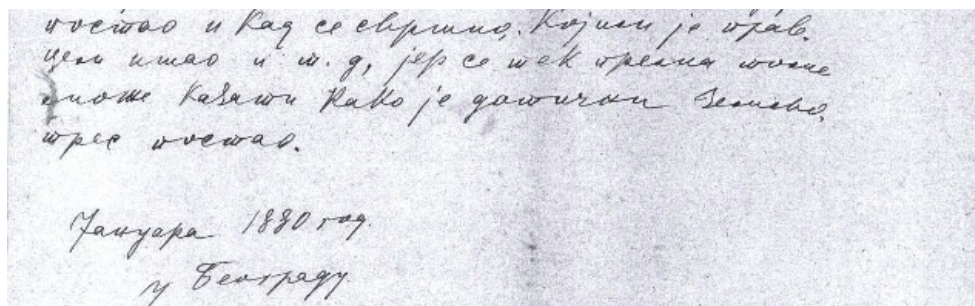 постао и кад се свршио. Којим је прав.
цем ишао и т. д, јер се тек према томе
може казати како је дотични Земљо.
трес постао.
Јануара 1880 год.
у Београду